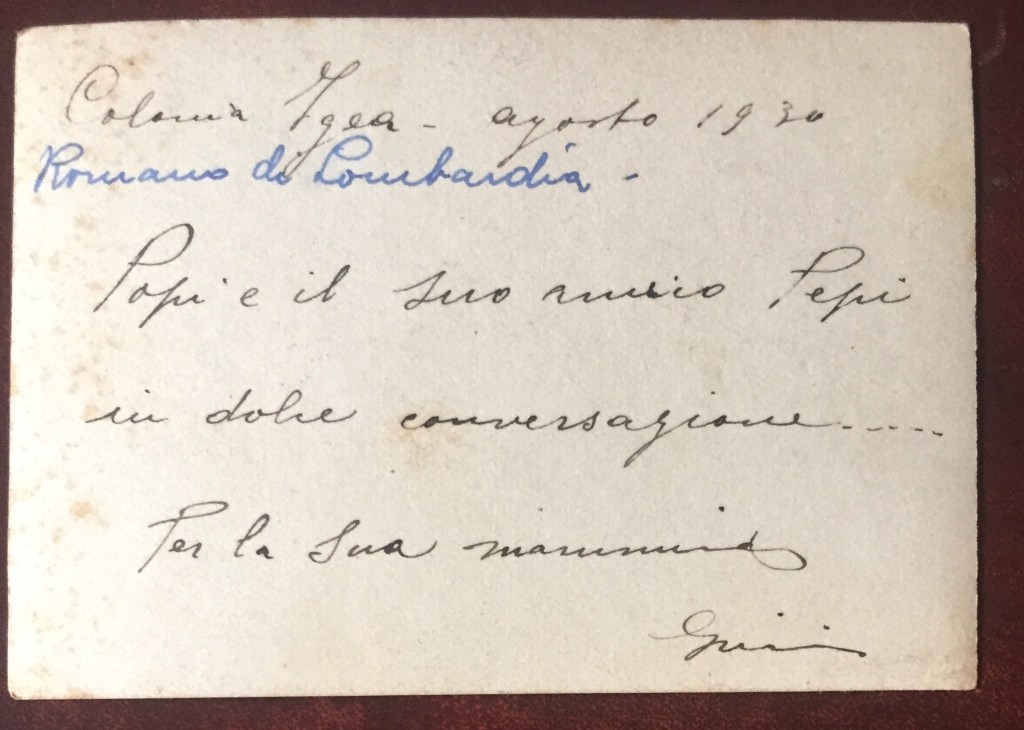 Colonia Igea - agosto 1930
Romano di Lombardia -
Popi e il suo amico Pepi
in dolce conversazione.....
Per la sua mammina